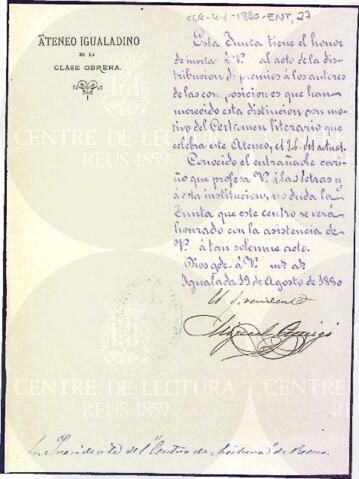 CLR-4-1-1880-ENT, 27
ATENEO IGUALADINO
DE LA
CLASE OBRERA.
Esta Junta tiene el honor
de invita à V. al acto de la dis
tribucion de premios á los autores
de las composiciones que han
merecido esta distincion con mo
tivo del Certamen literario que
celebra este Ateneo, el 26 del actual.
Conocido el entrañable cari
ño que profesa V. á las letras y
á esta institucion, no duda la
Junta que este centro se verá
honrado con la asistencia de
V. á tan solemne acto.
Dios gde. à V. ms. as.
Igualada 19 de Agosto de 1880
El Presidente
Miguel
Sr. Presidente del "Centro de Lectura" de Reus.
CENTRE DE LECTURA
REUS 1859
CENTRE DE LECTURA
REUS 1859